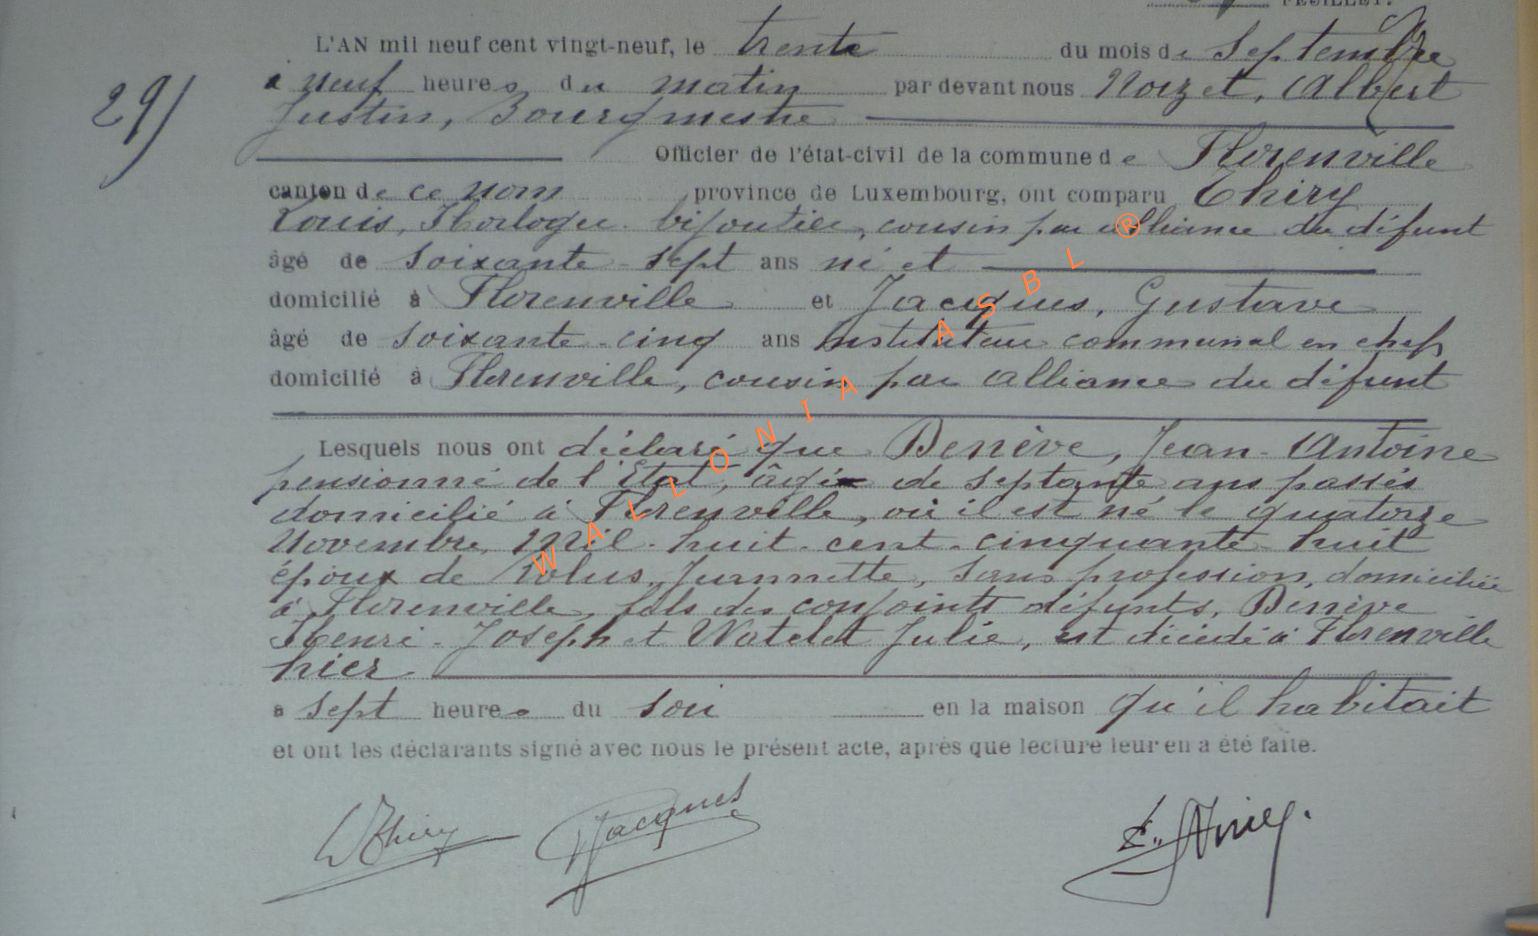 FEUILLET.
L'AN mil neuf cent vingt-neuf, le trente du mois de Septembre
à neuf heures du matin par devant nous Noizet, Albert
Justin, Bourgmestre
29/
Officier de l'état-civil de la commune de Florenville
canton de ce nom province de Luxembourg, ont comparu Thiry
Louis, Horloger bijoutier, cousin par alliance du défunt
âgé de soixante-sept ans né et
domicilié à Florenville et Jacques, Gustave
âgé de soixante-cinq ans Instituteur communal en chef
domicilié à Florenville, cousin par alliance du défunt
Lesquels nous ont déclaré que Denève, Jean-Antoine
pensionné de l'Etat, âgé de septante ans passés
domicilié à Florenville, où il est né le quatorze
Novembre mil-huit-cent-cinquante-huit
époux de Jeannette, sans profession, domiciliée
à Florenville, fils des conjoints défunts, Denève
Henri-Joseph et Watelet Julie, est décédé à Florenville
hier
à sept heures du soir en la maison qu'il habitait
et ont les déclarants signé avec nous le présent acte, après que lecture leur en a été faite.
L Thiry Jacques
WALLONIA ASBL ®